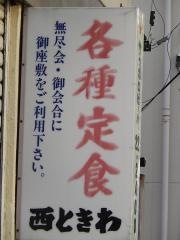 各種定食
無尽会・御会合に
御座敷をご利用下さい。
西ときわ